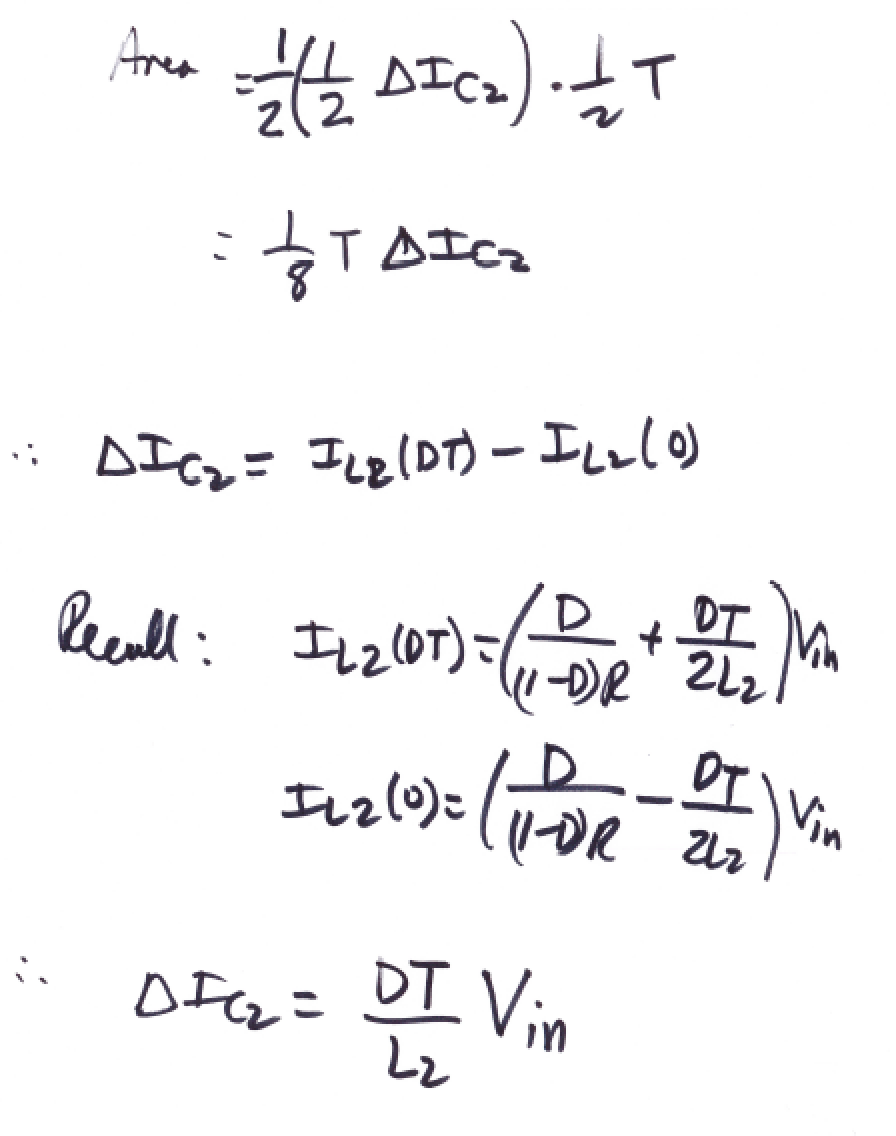 Area = 1/2 (1/2 ΔI_C2) · 1/2 T
= 1/8 T ΔI_C2
∴ ΔI_C2 = I_L2(DT) − I_L2(0)
Recall: I_L2(DT) = (D/((1−D)R) + DT/(2L_2)) V_in
I_L2(0) = (D/((1−D)R) − DT/(2L_2)) V_in
∴ ΔI_C2 = DT/L_2 V_in